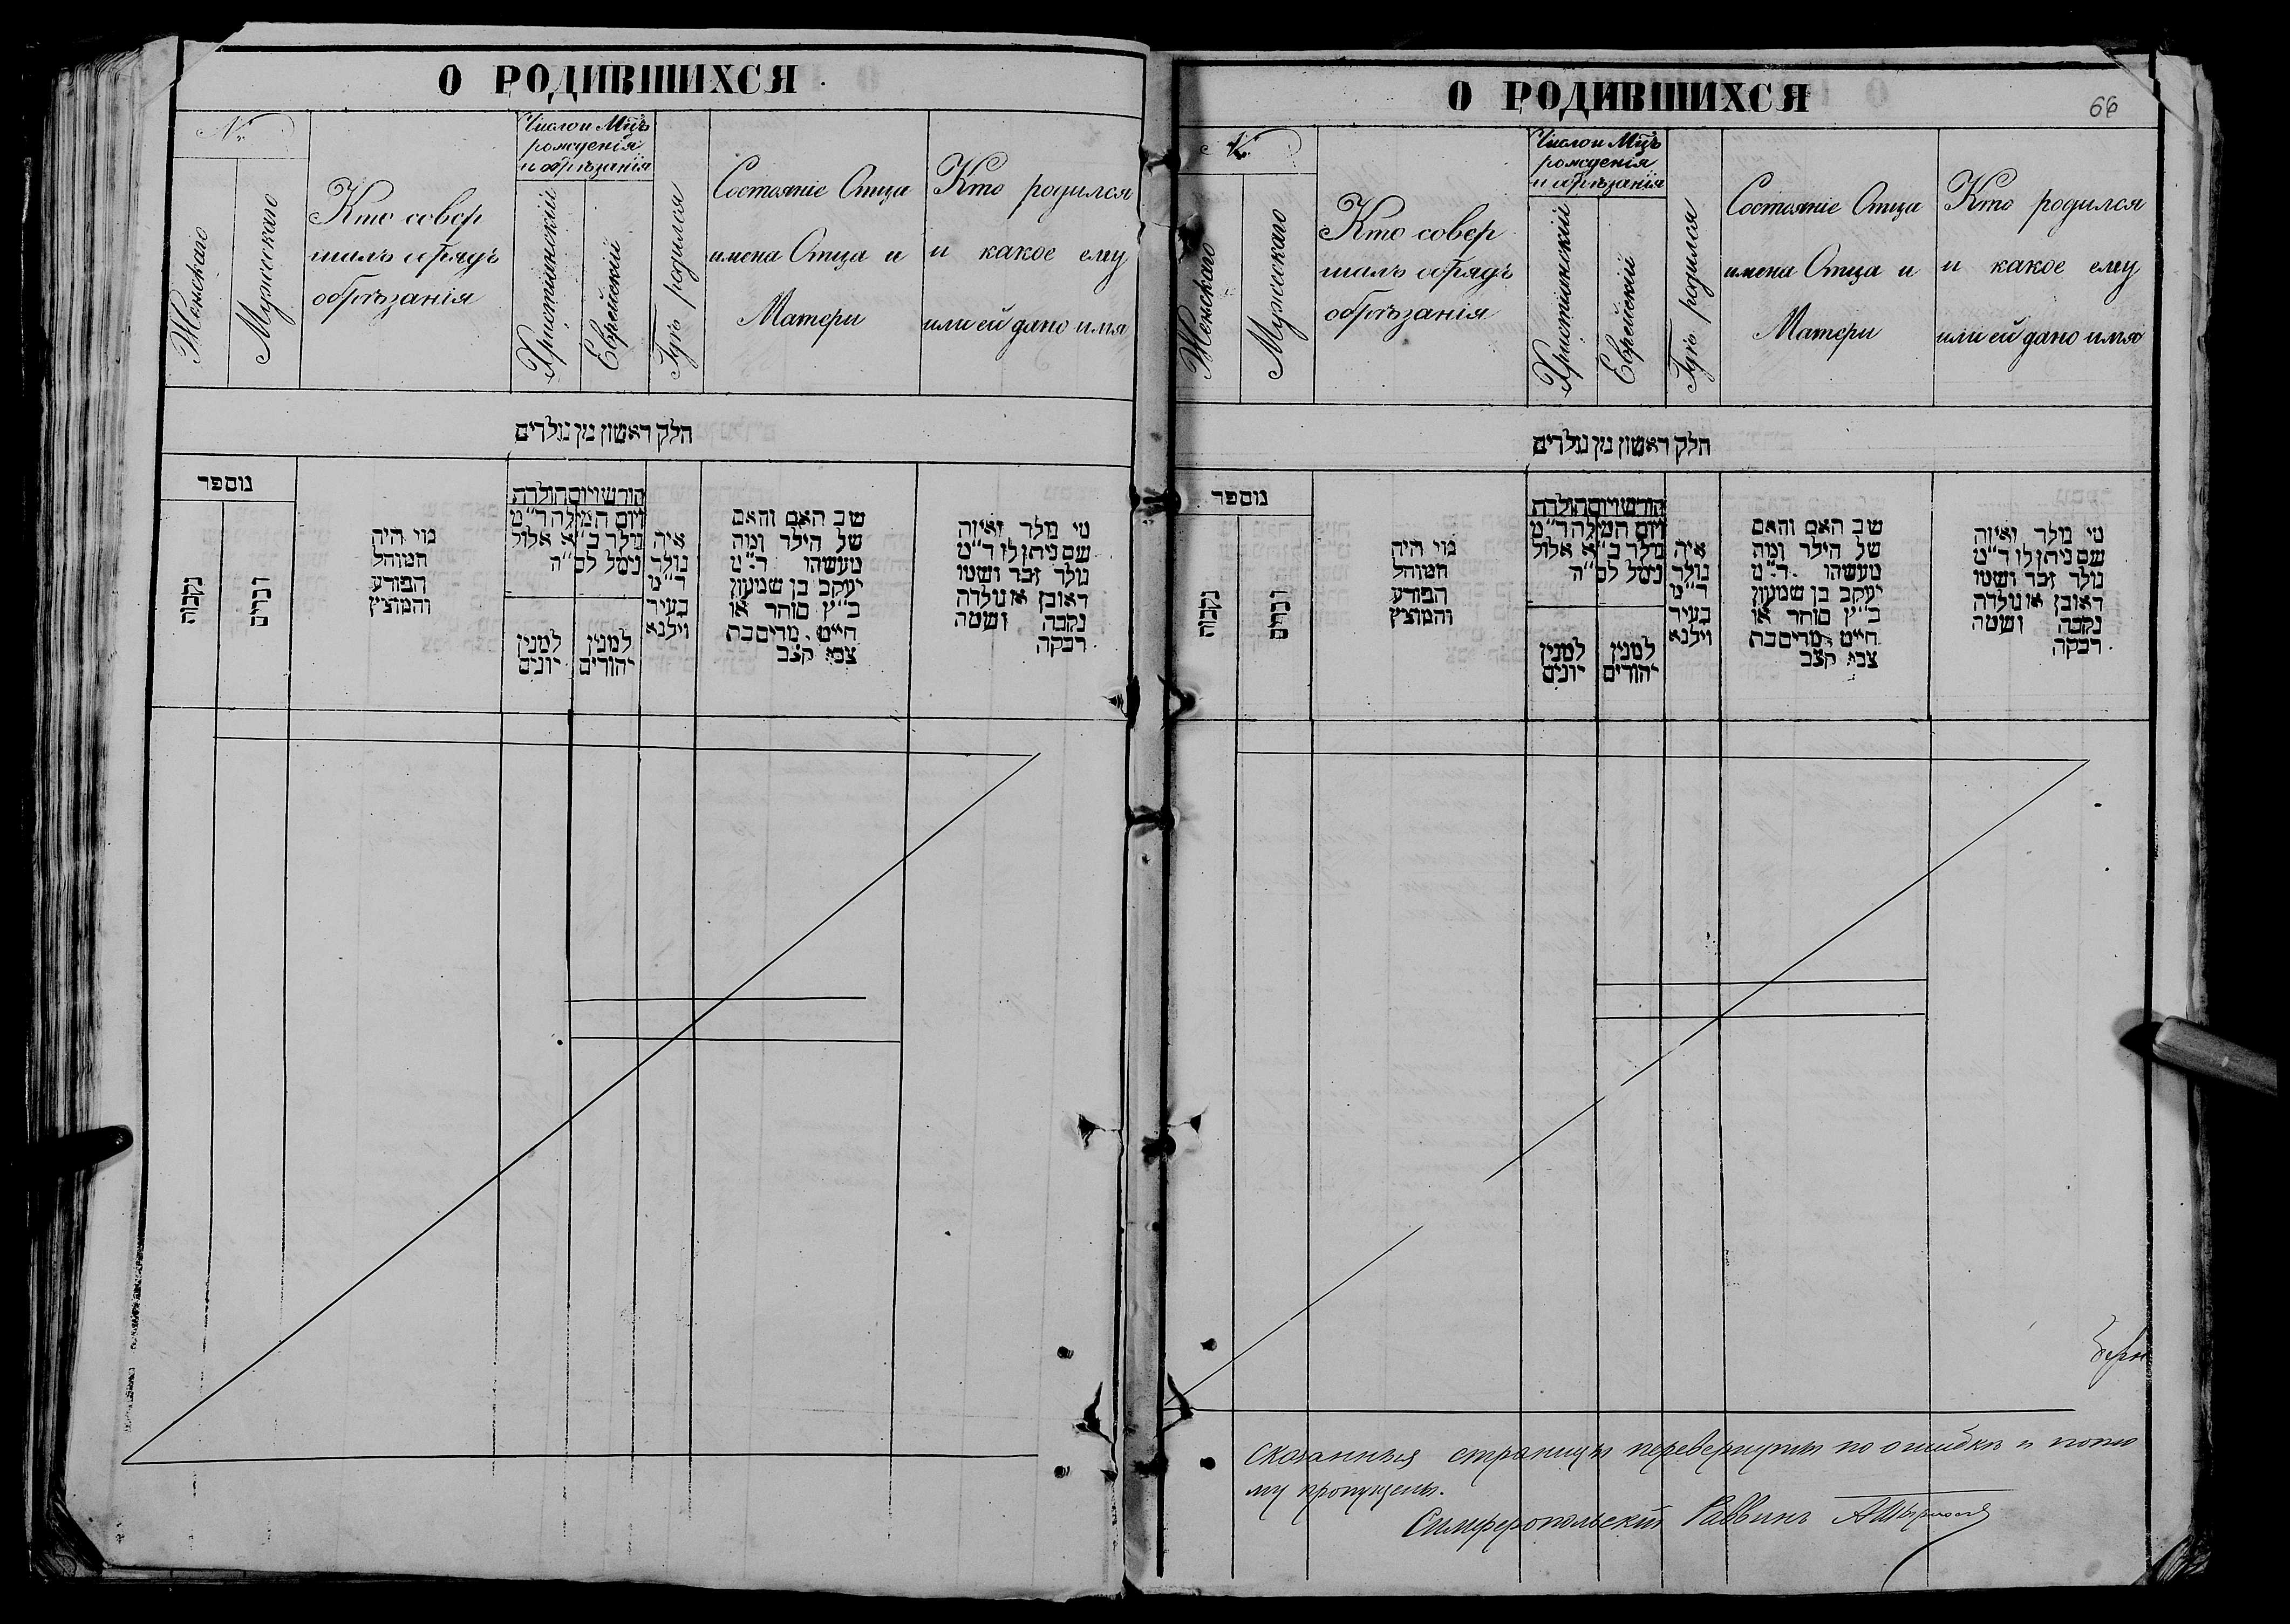 О РОДИВШИХСЯ
№
Женскаго
Мужескаго
Кто совер
шалъ обрядъ
обрѣзанія
Число и Мц̃ъ
рожденія
и обрѣзанія
Христіанскій
Еврейскій
Гдѣ родился
Состояніе Отца
имена Отца и
Матери
Кто родился
и какое ему
или ей дано имя
חלק ראשון מן נולדים
מספר
נקבות
זכרים
מי היה
המוהל
הפורע
והמוצץ
חודש ויום הולדת
ויום המילה ד״מ
נולד ב״א אלול
נימל לס״ה
למנין
יונים
למנין
יהודים
איה
נולד
ד״מ
בעיר
וילנא
שב האם והאם
של הילד ומה
מעשהו ד״מ
יעקב בן שמעון
כ״ץ סוחר או
חייט מרים בת
צבי קצב
מי נולד ואיזה
שם ניתן לו ד״מ
נולד זכר ושמו
ראובן או נולדה
נקבה ושמה
רבקה
О РОДИВШИХСЯ
66
№
Женскаго
Мужескаго
Кто совер
шалъ обрядъ
обрѣзанія
Число и Мц̃ъ
рожденія
и обрѣзанія
Христіанскій
Еврейскій
Гдѣ родился
Состояніе Отца
имена Отца и
Матери
Кто родился
и какое ему
или ей дано имя
חלק ראשון מן נולדים
מספר
נקבות
זכרים
מי היה
המוהל
הפורע
והמוצץ
חודש ויום הולדת
ויום המילה ד״מ
נולד ב״א אלול
נימל לס״ה
למנין
יונים
למנין
יהודים
איה
נולד
ד״מ
בעיר
וילנא
שב האם והאם
של הילד ומה
מעשהו ד״מ
יעקב בן שמעון
כ״ץ סוחר או
חייט מרים בת
צבי קצב
מי נולד ואיזה
שם ניתן לו ד״מ
נולד זכר ושמו
ראובן או נולדה
נקבה ושמה
רבקה
сказанныя страницы перевернуты по ошибкѣ и пото
му пропущены.
Симферопольскій Раввинъ